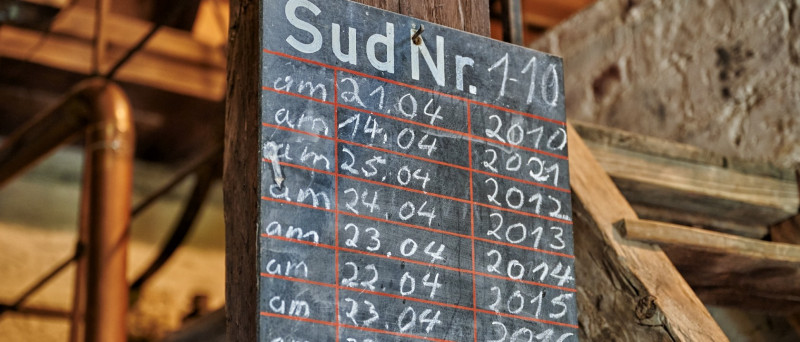 Sud Nr. 1-10
am 21.04 2010
am 14.04 2021
am 25.04 2012
am 24.04 2013
am 23.04 2014
am 22.04 2015
am 23.04